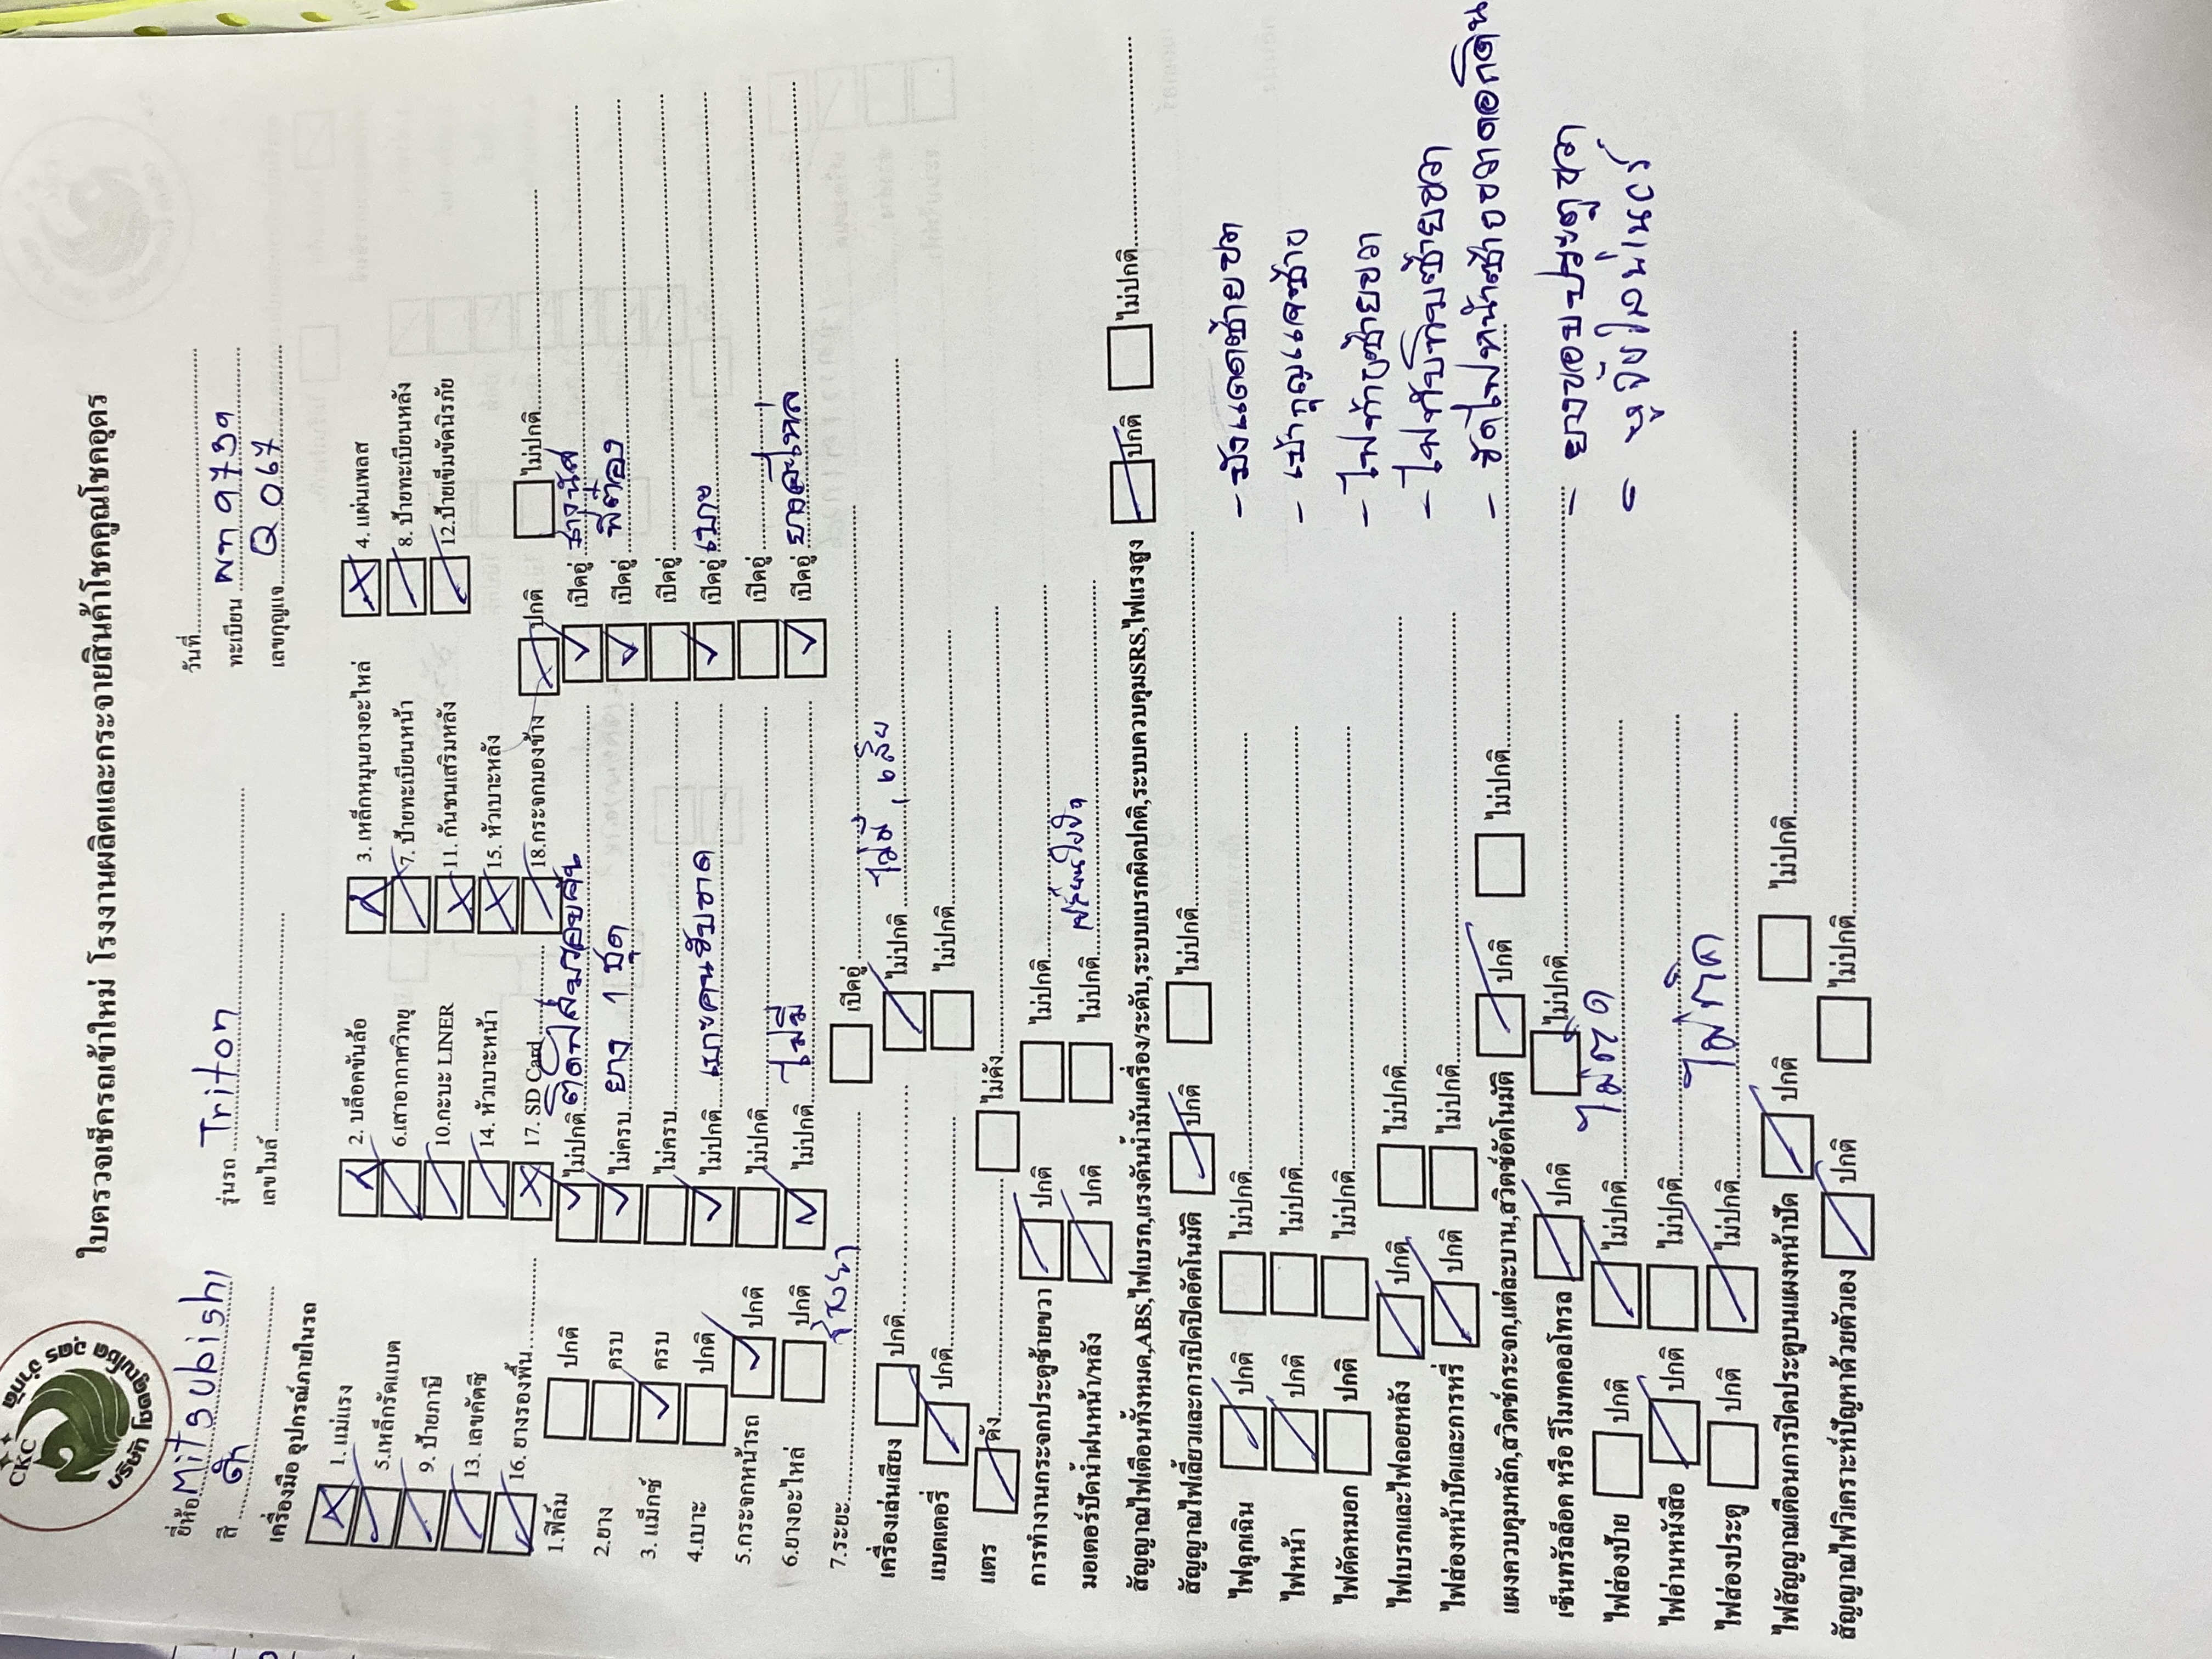 CKC
บริษัท โชคคูณโชค อุดร จำกัด
ใบตรวจเช็ครถเข้าใหม่ โรงงานผลิตและกระจายสินค้าโชคคูณโชคอุดร
วันที่
ยี่ห้อ Mitsubishi รุ่นรถ Triton ทะเบียน ผท 9739
สี ดำ เลขไมล์ เลขกุญแจ Q 067
เครื่องมือ อุปกรณ์ภายในรถ
1. แม่แรง 2. บล็อคขันล้อ 3. เหล็กหมุนยางอะไหล่ 4. แผ่นเพลส
5.เหล็กรัดแบต 6.เสาอากาศวิทยุ 7. ป้ายทะเบียนหน้า 8. ป้ายทะเบียนหลัง
9. ป้ายภาษี 10.กะบะ LINER 11. กันชนเสริมหลัง 12.ป้ายเข็มขัดนิรภัย
13. เลขคัตซี 14. หัวเบาะหน้า 15. หัวเบาะหลัง
16. ยางรองพื้น 17. SD Card 18.กระจกมองข้าง ปกติ ไม่ปกติ
1.ฟิล์ม ปกติ ไม่ปกติ เปิดอยู่
2.ยาง ครบ ไม่ครบ ยาง 1 ชุด เปิดอยู่ พี่ต๋อง
3. แม็กซ์ ครบ ไม่ครบ เปิดอยู่
4.เบาะ ปกติ ไม่ปกติ เบาะคนขับขาด เปิดอยู่ เบาะ
5.กระจกหน้ารถ ปกติ ไม่ปกติ เปิดอยู่
6.ยางอะไหล่ ปกติ ไม่ปกติ ไม่มี เปิดอยู่ ยางอะไหล่
7.ระยะ เปิดอยู่
เครื่องเล่นเสียง ปกติ ไม่ปกติ ไม่มี
แบตเตอรี่ ปกติ ไม่ปกติ
แตร ดัง ไม่ดัง
การทำงานกระจกประตูซ้ายขวา ปกติ ไม่ปกติ
มอเตอร์ปัดน้ำฝนหน้า/หลัง ปกติ ไม่ปกติ
สัญญาณไฟเตือนทั้งหมด,ABS,ไฟเบรก,แรงดันน้ำมันเครื่อง/ระดับ,ระบบเบรกผิดปกติ,ระบบควบคุมSRS,ไฟแรงสูง ปกติ ไม่ปกติ
สัญญาณไฟเลี้ยวและการเปิดปิดอัตโนมัติ ปกติ ไม่ปกติ
ไฟฉุกเฉิน ปกติ ไม่ปกติ - บังแดดซ้ายขวา
ไฟหน้า ปกติ ไม่ปกติ - เบ้ากุญแจซ้าย
ไฟตัดหมอก ปกติ ไม่ปกติ - ไฟท้ายซ้ายขวา
ไฟเบรกและไฟถอยหลัง ปกติ ไม่ปกติ - ไฟทับทิมซ้ายขวา
ไฟส่องหน้าปัดและการหรี่ ปกติ ไม่ปกติ
แผงควบคุมหลัก,สวิตช์กระจก,แต่ละบาน,สวิตช์อัตโนมัติ ปกติ ไม่ปกติ
เซ็นทรัลล็อค หรือ รีโมทคอลโทรล ปกติ ไม่ปกติ - ยางขอบประตูขวา
ไฟส่องป้าย ปกติ ไม่ปกติ ไม่ติด
ไฟอ่านหนังสือ ปกติ ไม่ปกติ
ไฟส่องประตู ปกติ ไม่ปกติ ไม่ติด
ไฟสัญญาณเตือนการปิดประตูบนแผงหน้าปัด ปกติ ไม่ปกติ
สัญญาณไฟวิเคราะห์ปัญหาด้วยตัวเอง ปกติ ไม่ปกติ